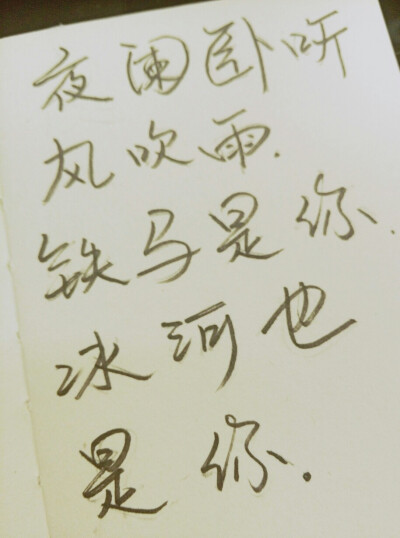 夜阑卧听
风吹雨.
铁马是你.
冰河也
是你.